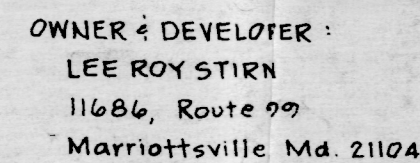 OWNER & DEVELOPER :
LEE ROY STIRN
11686, Route 99
Marriottsville Md. 21104